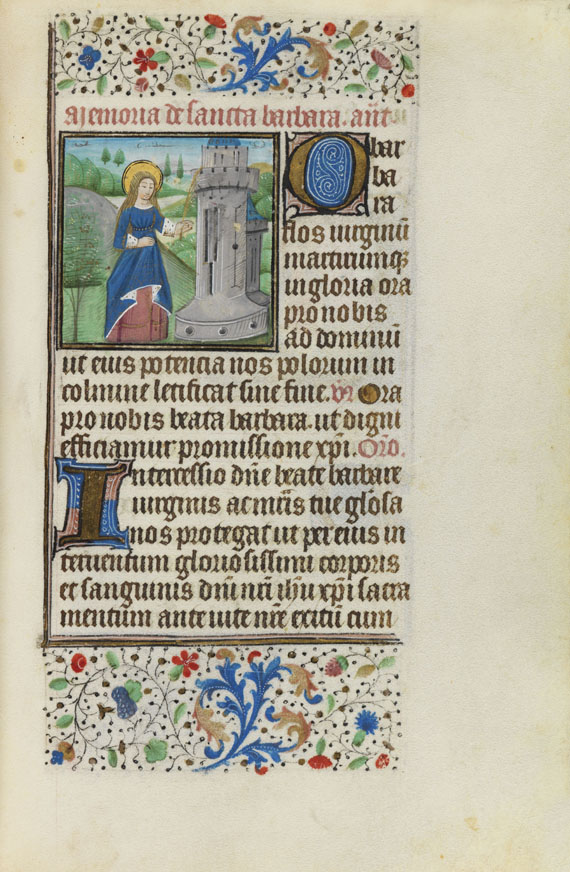 Memoria de sancta barbara. añt
O bar
ba
ra
flos uirginũ
martirumq
in gloria ora
pro nobis
ad dominũ
ut eius potencia nos polorum in
colmine letificat sine fine. Vr̃ Ora
pro nobis beata barbara. ut digni
efficiamur promissione xp̃i. Orõ.
Intercessio dñe beate barbare
uirginis ac mr̃is tue glõsa
nos protegat ut per eius in
teruentum gloriosissimi corporis
et sanguinis dñi nr̃i ihũ xp̃i sacra
mentum ante uite nr̃e exitũ cum